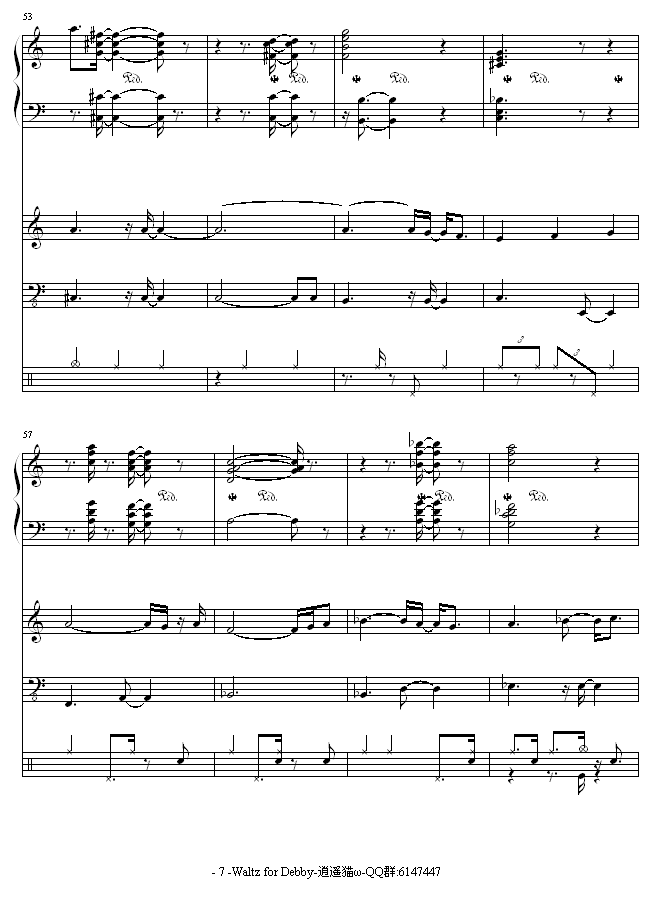 53
3
3
57
- 7 -Waltz for Debby-逍遙猫ω-QQ群:6147447